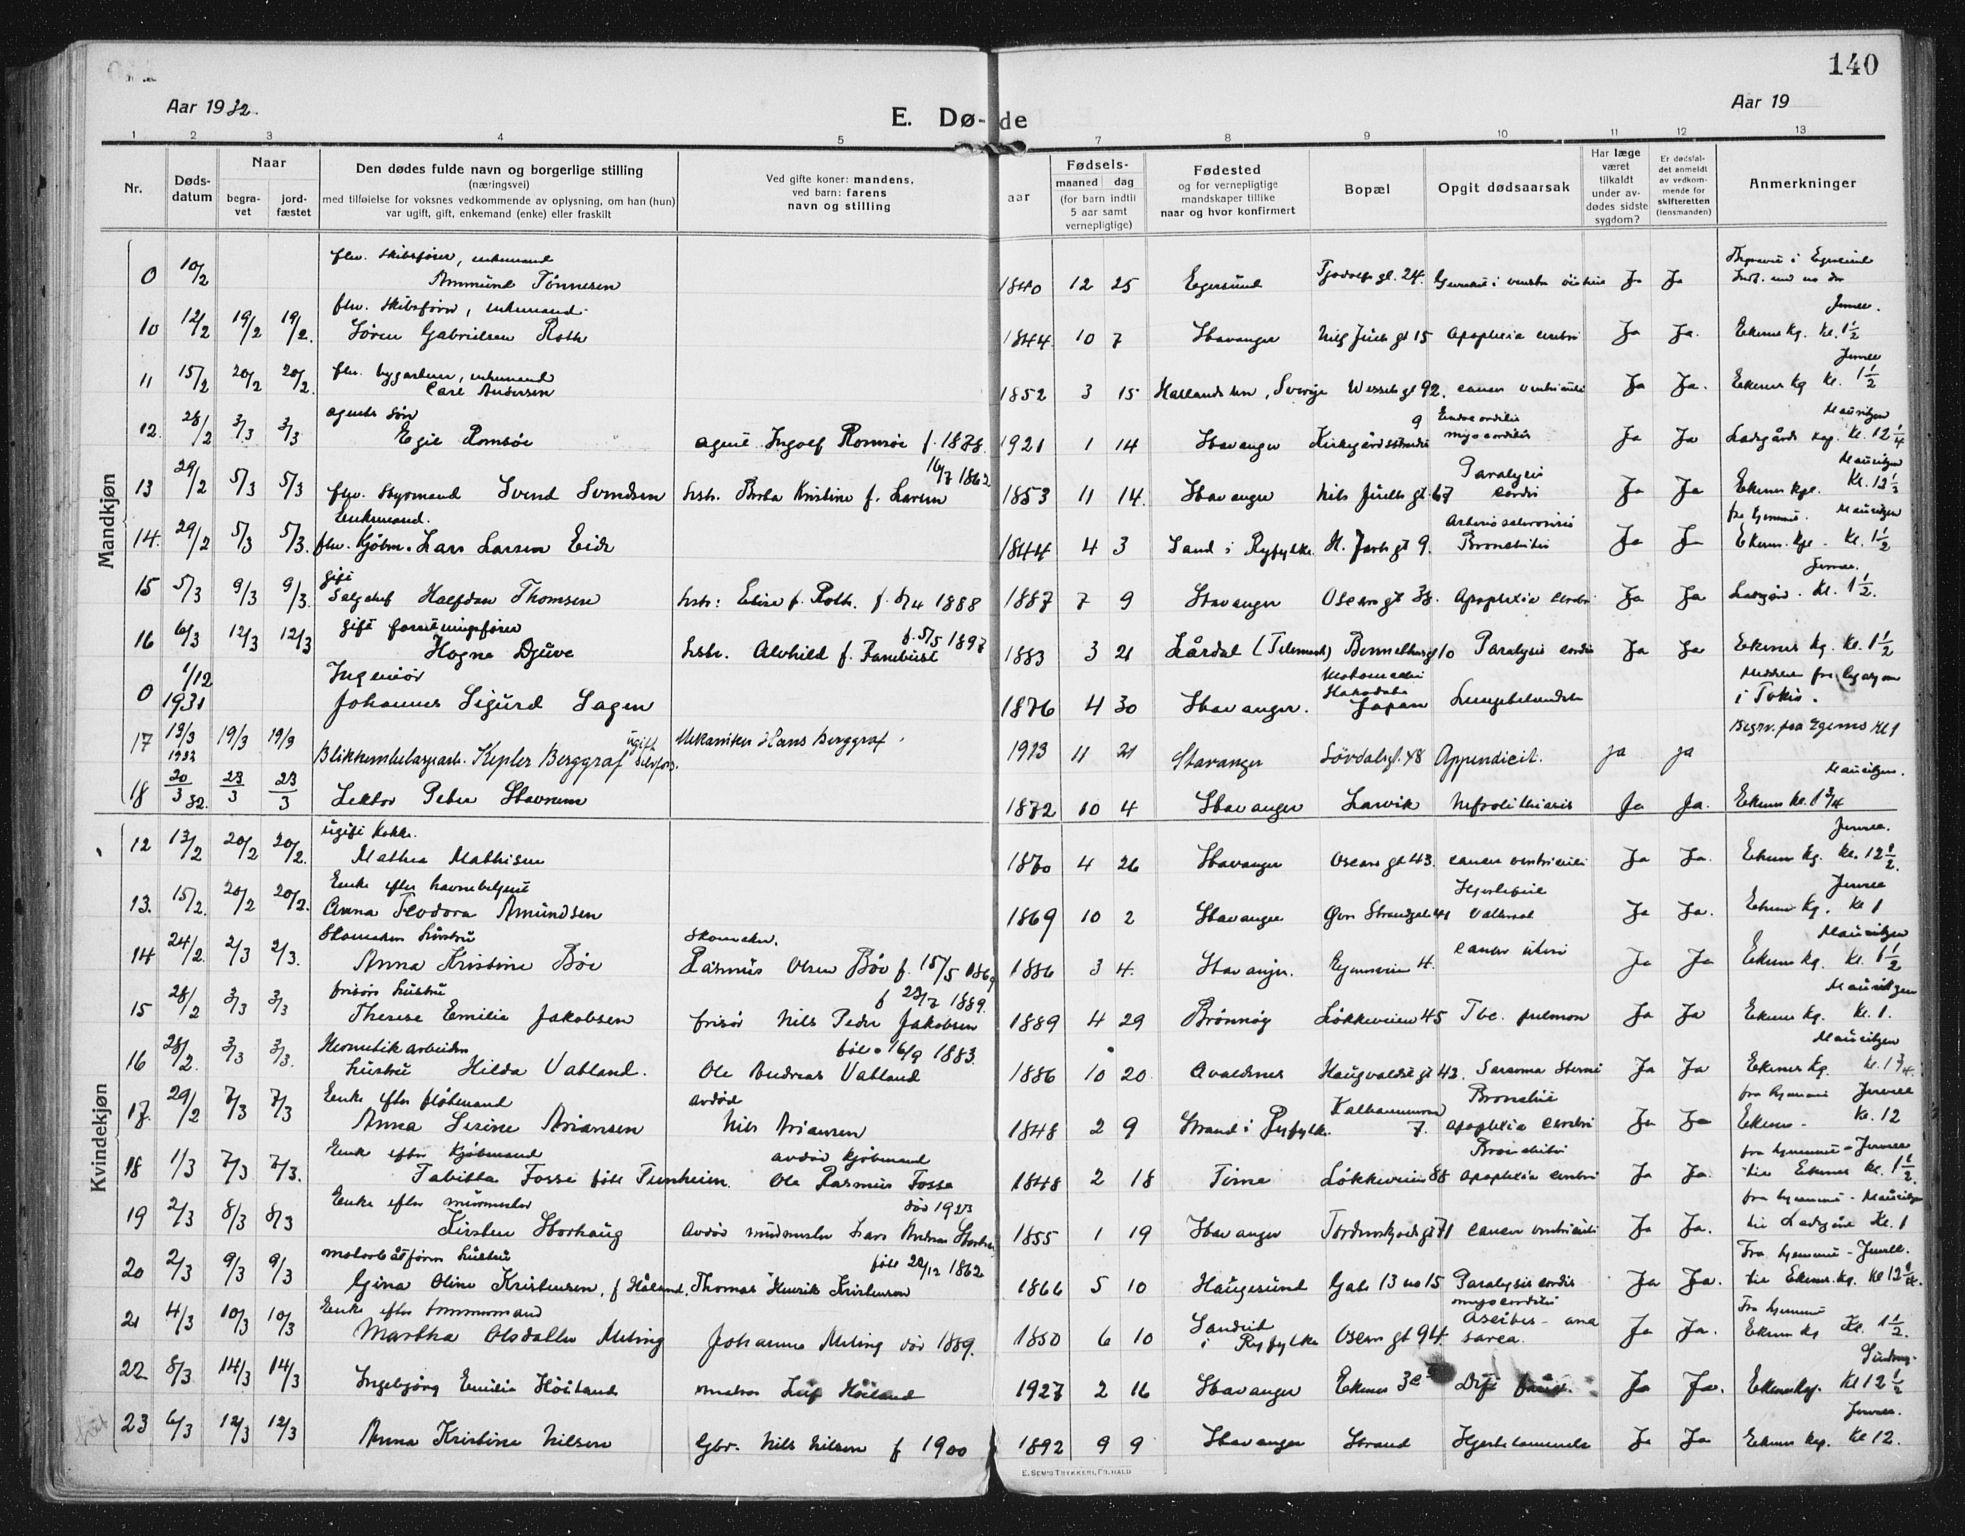 140
Aar 1932. E. Dø- de Aar 19
1 2 3 4 5 7 8 9 10 11 12 13
Nr. Døds-datum Naar begra-vet jord-fæstet
Den dødes fulde navn og borgerlige stilling
(næringsvei)
med tilføielse for voksnes vedkommende av oplysning, om han (hun)
var ugift, gift, enkemand (enke) eller fraskilt
Ved gifte koner: mandens,
ved barn: farens
navn og stilling
aar Fødsels- maaned dag
(for barn indtil
5 aar samt
vernepligtige)
Fødested
og for vernepligtige
mandskaper tillike
naar og hvor konfirmert
Bopæl
Opgit dødsaarsak
Har læge
været
tilkaldt
under av-
dødes sidste
sygdom?
Er dødsfal-
det anmeldt
av vedkom-
mende for
skifteretten
(lensmanden)
Anmerkninger
Mandkjøn
0 10/2 flv. skibsfører, enkemand
Ammund Tønnesen 1840 12 25 Egersund gt. 24. Ja Ja
10 12/2 19/2 19/2. flv. skibsfører, enkemand
Søren Gabrielsen Roth 1844 10 7 Stavanger Nils Juels gt 15 Apoplexia cerebri Ja Ja. Ekenes kg. kl. 1 1/2
11 15/2 20/2 20/2. enkemand
Carl Andersen 1852 3 15 Sverige Wessels gt 92. cancer ventriculi Ja Ja. Ekenes kg kl. 1 1/2
12. 28/2 3/3 3/3 agents søn
Egil Romsøe agent Ingolf Romsøe f. 1878. 1921 1 14 Stavanger 9 Endocarditis myocarditis Ja Ja Mauritzen kap. kl. 12 1/4
13 29/2 5/3 5/3 flv. styrmand Svend Svendsen hstr. Berta Kristine f. Larsen 16/7 1862 1853 11 14. Stavanger Nils Juels gt. 67 Paralysis cordis Ja Ja Mauritzen Ekenes kpl. kl. 12 1/3
14. 29/2 5/3 5/3. Enkemand.
flv. Kjøbm. Lars Larsen Eide 1844 4 3 Sand i Ryfylke H. Jarls gt 9. Arteriosclerosis Bronchitis Ja Ja fra hjemmet. Mauritzen Ekenes kpl. kl. 1 1/2
15 5/3 9/3 9/3. gift
Salgchef Halfdan Thomsen hstr: Elise f. Roth. 1888 1887 7 9 Stavanger Oscars gt 38. Apoplexia cerebri Ja Ja kl. 1 1/2.
16 6/3 12/3 12/3 gift forretningsfører
Hogne Djuve hstr. Alvhild f. Fanebust f. 5/5 1897 1883 3 21 Lårdal (Telemark) 10 Paralysis cordis Ja Ja Ekenes kg. kl. 1 1/2
0 1/12 1931 Ingeniør
Johannes Sigurd Sagen 1876 4 30 Stavanger. Hakodate Japan Lungebetændelse i Tokio.
17 13/3 1932 19/3 19/3 Kepler Berggraf ugift Mekaniker Hans Berggraf 1913 11 21 Stavanger Løvdalsgt. 48 Appendicit. ja ja Begrv. paa Egenes kl 1
18 20/3 32. 23/3 23/3 Lektor Peder Stavnem 1872 10 4 Stavanger Larvik Nefrolithiasis Ja Ja. Mauritzen. Ekenes kl. 1 3/4
Kvindekjøn
12 13/2 20/2 20/2. ugift kokke.
Mathea Mathisen 1870 4 26 Stavanger Oscars gt 43. cancer ventriculi Ja Ja. Ekenes kg. kl. 12 1/2.
13. 15/2. 20/2 20/2. Enke efter havnebetjent
Anna Teodora Amundsen 1869 10 2 Stavanger Øvre Strandgate 41 Hjertefeil Ja Ja. Ekenes kg. kl 1
14 24/2. 2/3 2/3. Skomakers hustru
Anna Kristine Bøe Skomaker. Rasmus Olsen Bøe f. 15/5 1869 1886 3 4. Stavanger. Egenesveien 4. cancer uteri Ja Ja Mauritzen Ekenes kg. kl. 1 1/2
15 28/2 3/3 3/3 frisørs hustru
Therese Emilie Jakobsen frisør Nils Peder Jakobsen f 23/7 1889. 1889 4 29 Brønnøy Løkkeveien 45 Tbc. pulmon Ja Ja Mauritzen Ekenes kg. kl. 1.
16 28/2. 3/3 3/3. Hermetikarbeiders
hustru Hilda Vatland. Ole Andreas Vatland født 16/9 1883. 1886 10 20 Avaldsnes Haugvaldst gt 43. Sarcoma Sterni Ja Ja Mauritzen Ekenes kg. kl. 1 3/4.
17. 29/2 7/3 7/3 Enke efter fløtmand
Anna Serine Ariansen avdød Nils Ariansen 1848 2 9 Strand i Ryfylke 7. Bronchit apoplexia cerebri Ja Ja fra hjemmet Ekenes - kl. 12
18 1/3 7/3 7/3. Enke efter Kjøbmand
Tabitha Fosse født Tunheim. avdød kjøbmand Ole Rasmus Fosse 1848 2 18 Time Løkkeveien 88 Bronchitis apoplexia cerebri Ja Ja. fra hjemmet til Ekenes kl. 1 1/2.
19 2/3 8/3 8/3 Enke efter murmester
Kirsten Storhaug Avdød murmester Lars Andreas død 1923 1855 1 19 Stavanger Tordenskjolds gt 71 cancer ventriculi Ja Ja. fra hjemmet - Mauritzen kl. 1
20 2/3 9/3 9/3 motorbåtførers hustru
Gina Oline Kristensen, f Håland. Thomas Henrik Kristensen født 22/12 1862 1866 5 10 Haugesund Gate 13 no 15 Paralysis cordis myocarditis Ja Ja. Fra hjemmet - til Ekenes kg. kl 12 1/4.
21 4/3 10/3 10/3 Enke efter tømmermand
Martha Olsdatter Meling Johannes Meling død 1889. 1850 6 10 Sandeid i Ryfylke Oscars gt 94. Ascites - anasarca. Ja Ja. Fra hjemmet Ekenes kg kl. 1 1/2.
22 8/3 14/3 14/3 Ingebjørg Emilie Høiland matros Leif Høiland 1927 2 16 Stavanger Ekenes Ja Ja. Ekenes kp. kl 12 1/2
23 6/3 12/3 12/3 Anna Kristine Nilsen Gbr. Nils Nilsen f 1900 1892 9 9 Stavanger Strand Hjertelammelse Ja Ja Ekenes kap. kl 12.
E. SEM'S TRYKKERI, FR.HALD